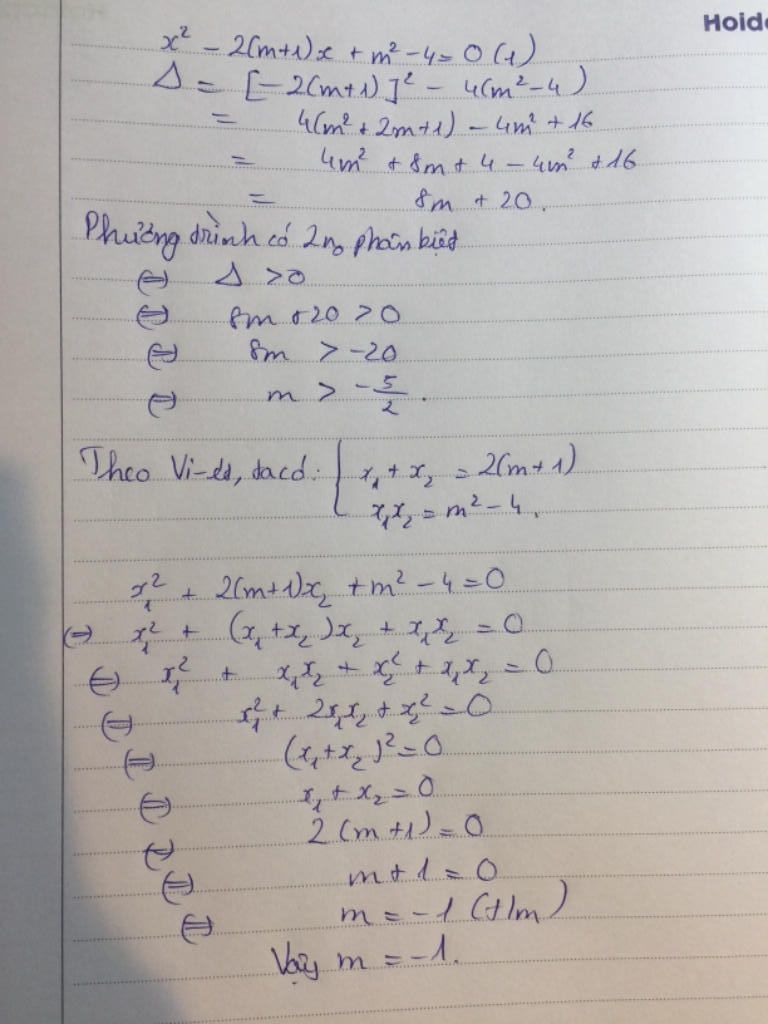 Hoid
x² - 2(m+1)x + m² - 4 = 0 (1)
Δ = [-2(m+1)]² - 4(m² - 4)
= 4(m² + 2m + 1) - 4m² + 16
= 4m² + 8m + 4 - 4m² + 16
= 8m + 20.
Phương trình có 2 n₀ phân biệt
⇔ Δ > 0
⇔ 8m + 20 > 0
⇔ 8m > -20
⇔ m > -5/2.
Theo Vi-ét, ta có: { x₁ + x₂ = 2(m+1)
x₁x₂ = m² - 4.
x₁² + 2(m+1)x₂ + m² - 4 = 0
⇔ x₁² + (x₁ + x₂)x₂ + x₁x₂ = 0
⇔ x₁² + x₁x₂ + x₂² + x₁x₂ = 0
⇔ x₁² + 2x₁x₂ + x₂² = 0
⇔ (x₁ + x₂)² = 0
⇔ x₁ + x₂ = 0
⇔ 2(m+1) = 0
⇔ m + 1 = 0
⇔ m = -1 (t/m)
Vậy m = -1.